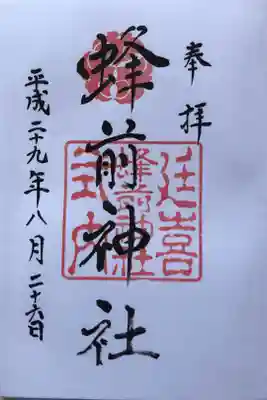 奉拝
蜂前神社
延喜
蜂前神社
式内
平成二十九年八月二十六日